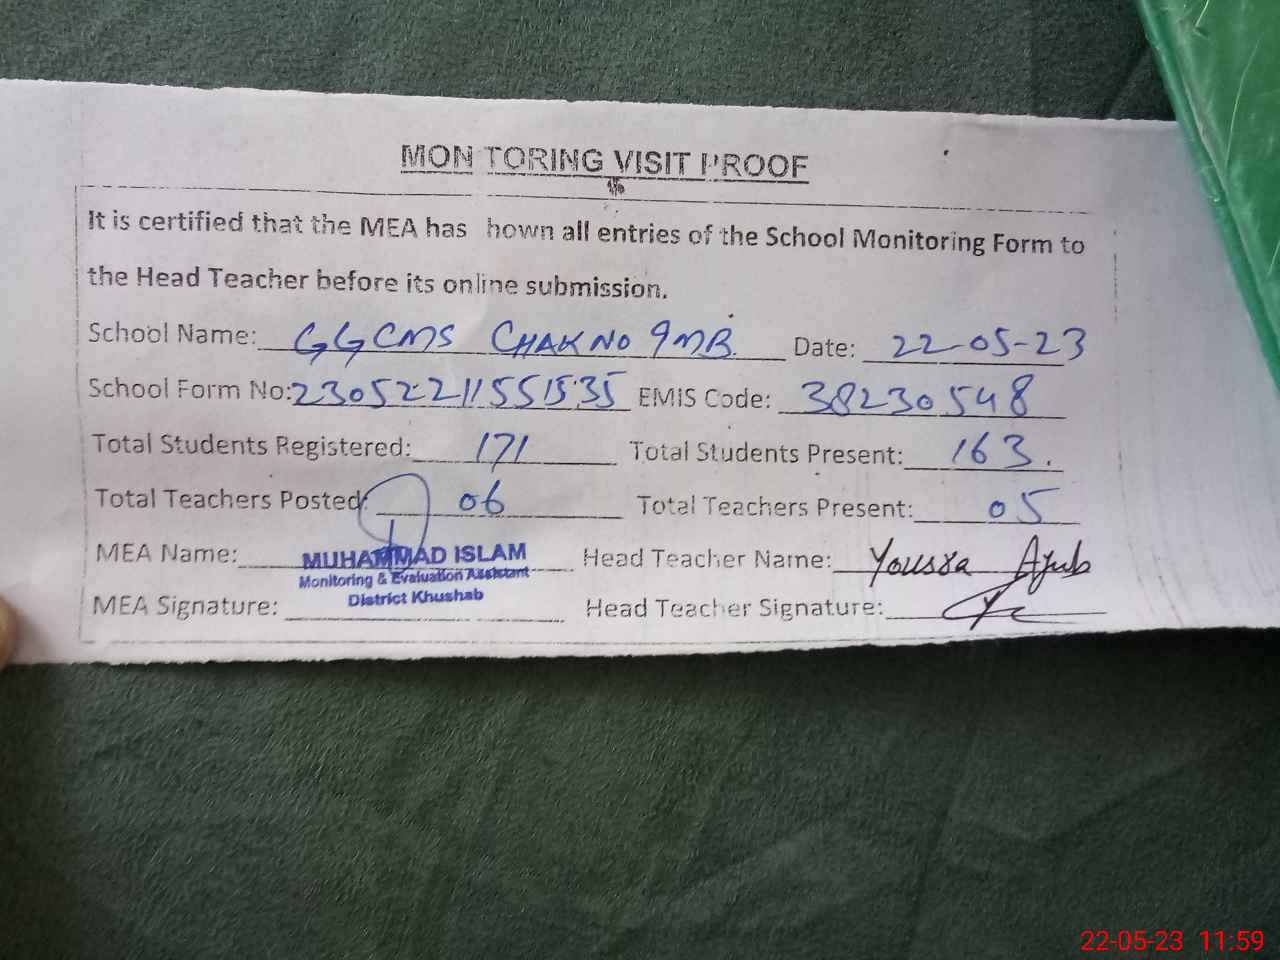 MONITORING VISIT PROOF
It is certified that the MEA has hown all entries of the School Monitoring Form to
the Head Teacher before its online submission.
School Name: GGCMS CHAK NO 9MB Date: 22-05-23
School Form No: 230522115515535 EMIS Code: 38230548
Total Students Registered: 171 Total Students Present: 163.
Total Teachers Posted: 06 Total Teachers Present: 05
MEA Name: MUHAMMAD ISLAM Head Teacher Name: Yousra Ayub
Monitoring & Evaluation Assistant
District Khushab
MEA Signature: Head Teacher Signature:
22-05-23 11:59